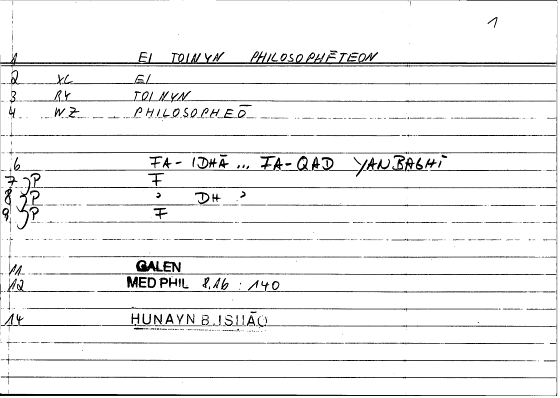 1
1 EI TOINYN PHILOSOPHĒTEON
2 XL EI
3 RY TOINYN
4 WZ PHILOSOPHEŌ
6 FA-IDHĀ ... FA-QAD YANBAGHĪ
7 P F
8 P ʾ DH ʾ
9 P F
11 GALEN
12 MED PHIL 8,16 : 140
14 HUNAYN B. ISHĀQ